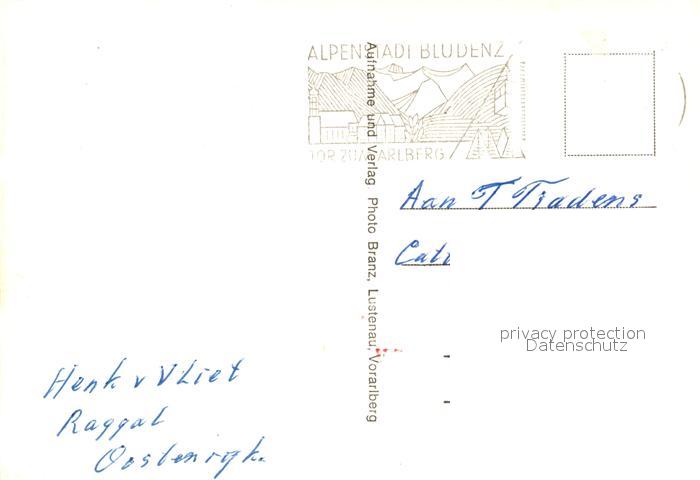 ALPENSTADT BLUDENZ
TOR ZUM ARLBERG
Aufnahme und Verlag Photo Branz, Lustenau, Vorarlberg
Aan T Tradens
privacy protection
Datenschutz
Henk v Vliet
Raggal
Oostenryk.